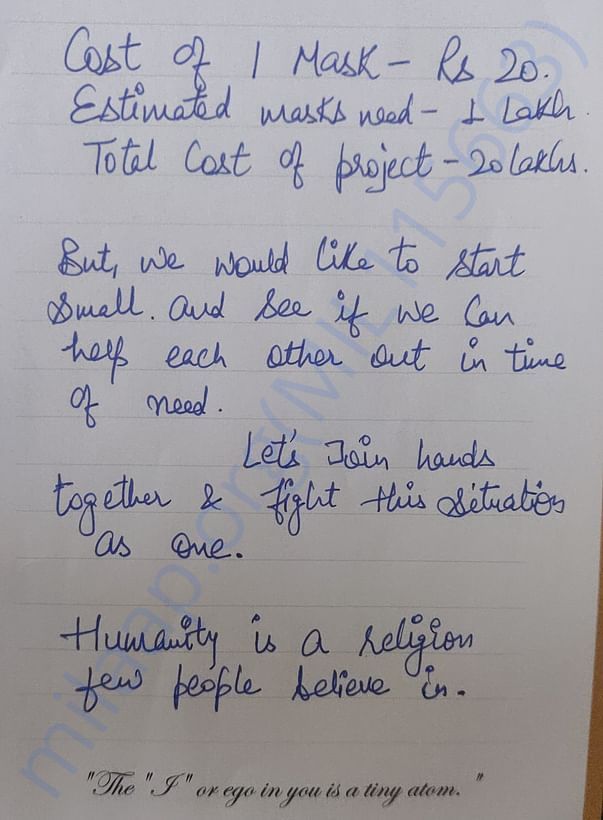 Cost of 1 Mask - Rs 20.
Estimated masks need - 1 Lakh.
Total Cost of project - 20 lakhs.
But, we would like to start
Small. and see if we can
help each other out in time
of need.
Let's Join hands
together & fight this situation
as one.
Humanity is a religion
few people believe in.
"The "I" or ego in you is a tiny atom. "
milaap.org(MIL115663)